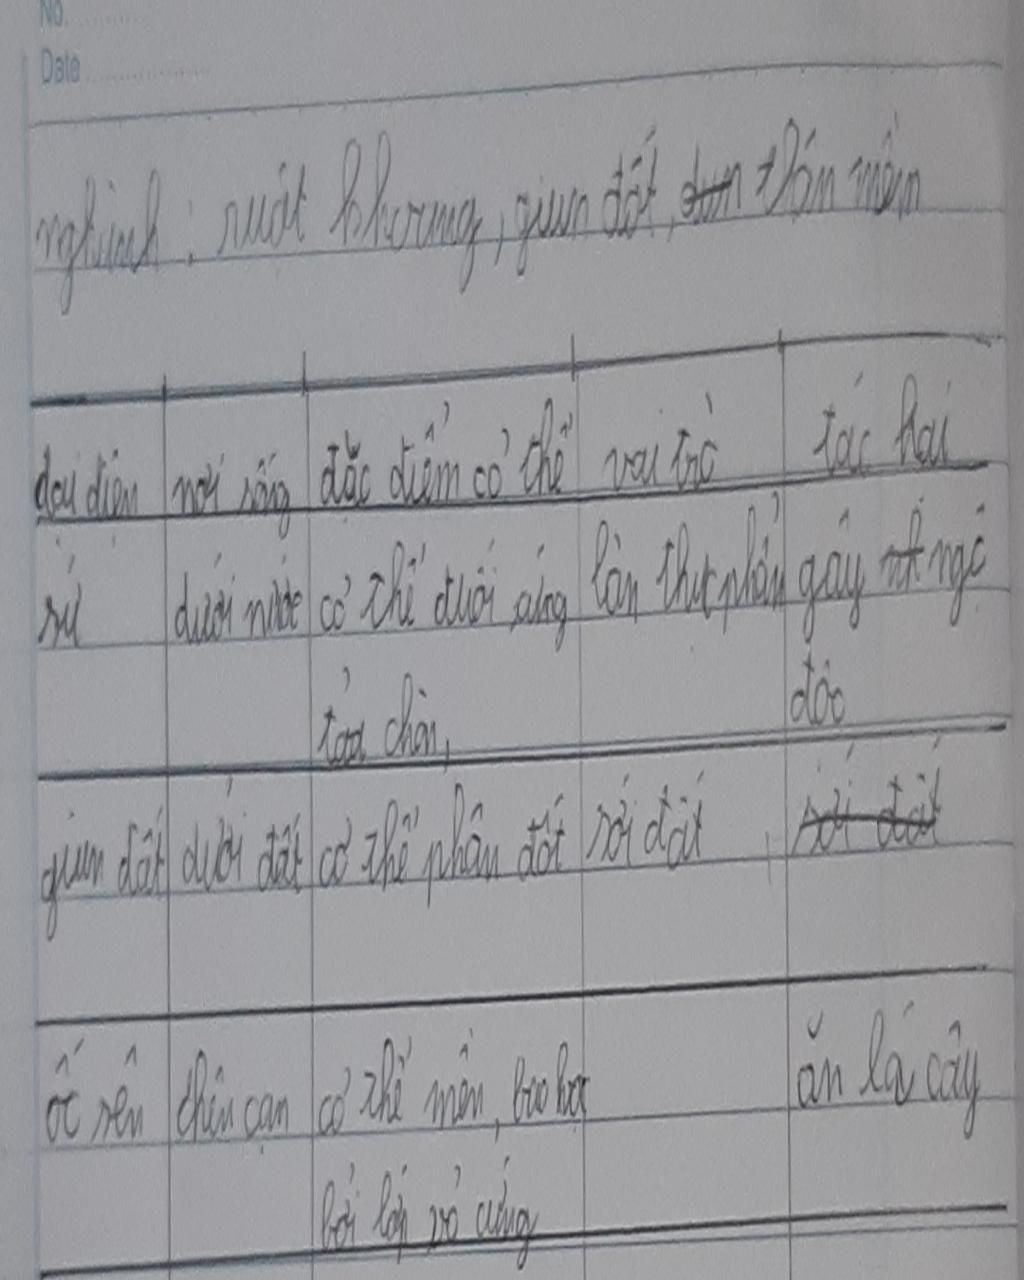 No.
Date
nghành : ruột khoang, giun đất, thân mềm
đại diện nơi sống đặc điểm cơ thể vai trò tác hại
sứ dưới nước cơ thể đuôi ứng làm thực phẩm gây ngộ
tỏa chân, độc
giun đất dưới đất cơ thể phân đốt xới đất
ốc sên trên cạn cơ thể mền, bao bọc ăn lá cây
bởi lớp vỏ cứng